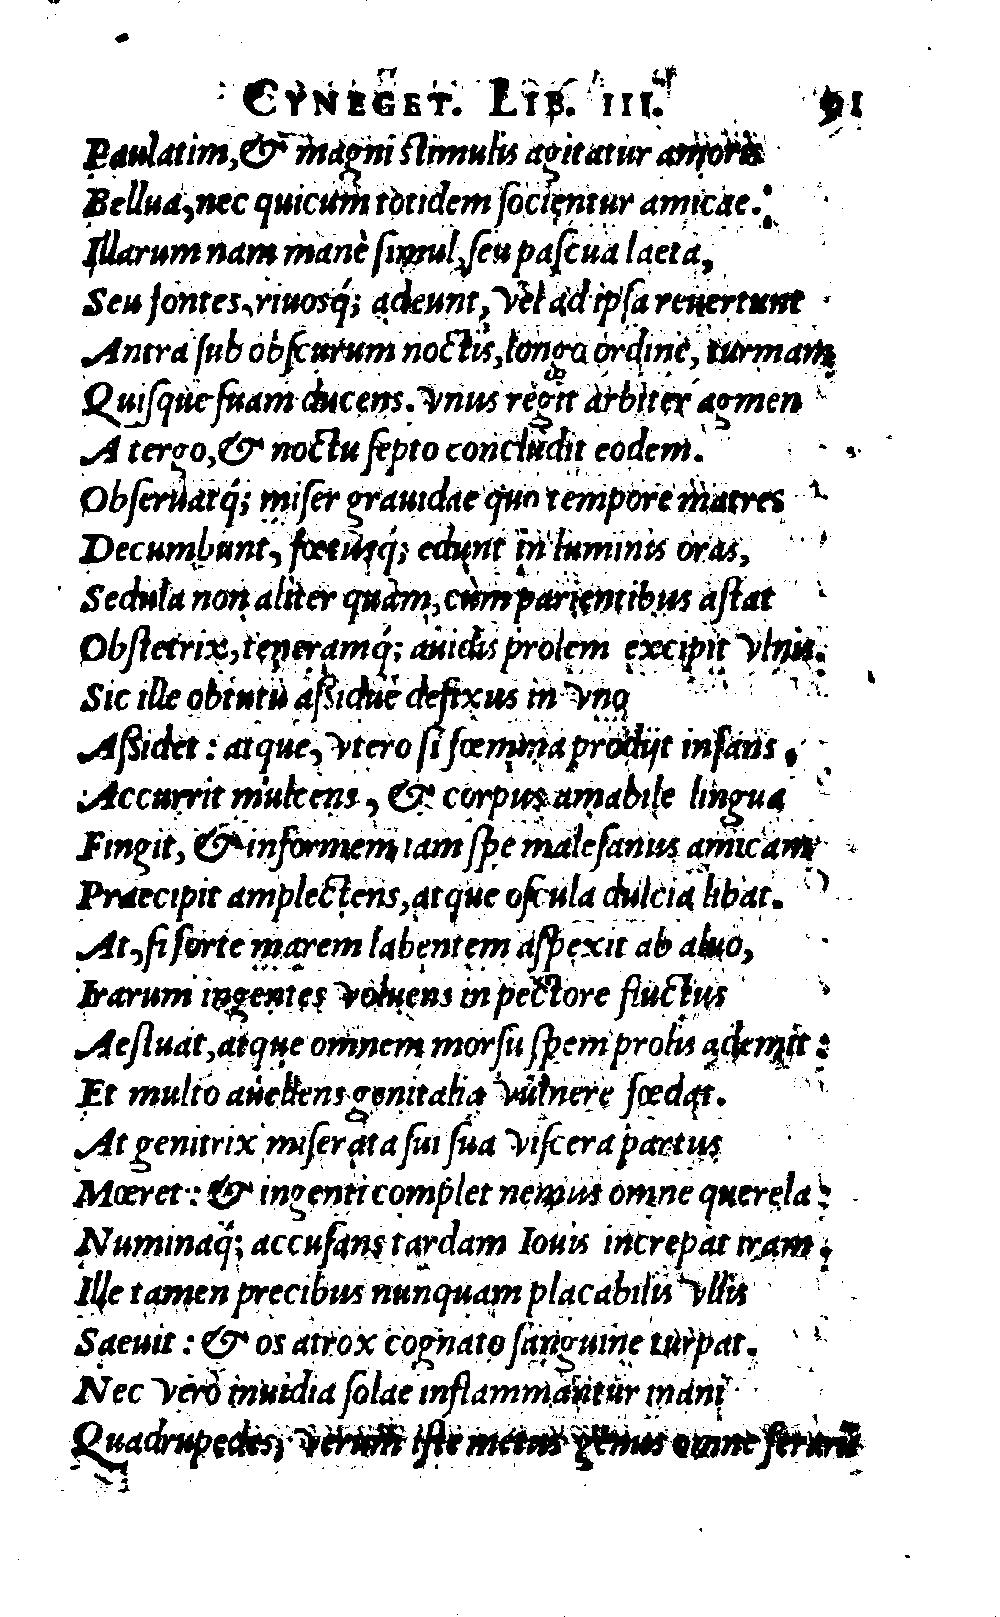 CYNEGET. LIB. III. 91
Paulatim, & magni stimulis agitatur amoris
Bellua, nec quicum totidem socientur amicae.
Illarum nam manè simul, seu pascua laeta,
Seu fontes, riuosq́; adeunt, vel ad ipsa reuertunt
Antra sub obscurum noctis, longo ordine, turmam
Quisque suam ducens. vnus regit arbiter agmen
A tergo, & noctu septo concludit eodem.
Obseruatq́; miser grauidae quo tempore matres
Decumbunt, fœtusq́; edunt in luminis oras,
Sedula non aliter quàm, cùm parientibus astat
Obstetrix, teneramq́; auidis prolem excipit vlnis.
Sic ille obtutu assiduè defixus in vno
Assidet: atque, vtero si fœmina prodijt infans,
Accurrit mulcens, & corpus amabile lingua
Fingit, & informem iam spe malesanus amicam
Praecipit amplectens, atque oscula dulcia libat.
At, si forte marem labentem aspexit ab aluo,
Irarum ingentes voluens in pectore fluctus
Aestuat, atque omnem morsu spem prolis ademit:
Et multo auellens genitalia vulnere fœdat.
At genitrix miserata sui sua viscera partus
Mœret: & ingenti complet nemus omne querela:
Numinaq́; accusans tardam Iouis increpat iram.
Ille tamen precibus nunquam placabilis vllis
Saeuit: & os atrox cognato sanguine turpat.
Nec verò inuidia solae inflammantur inani
Quadrupedes, verùm iste metus genus omne ferarũ